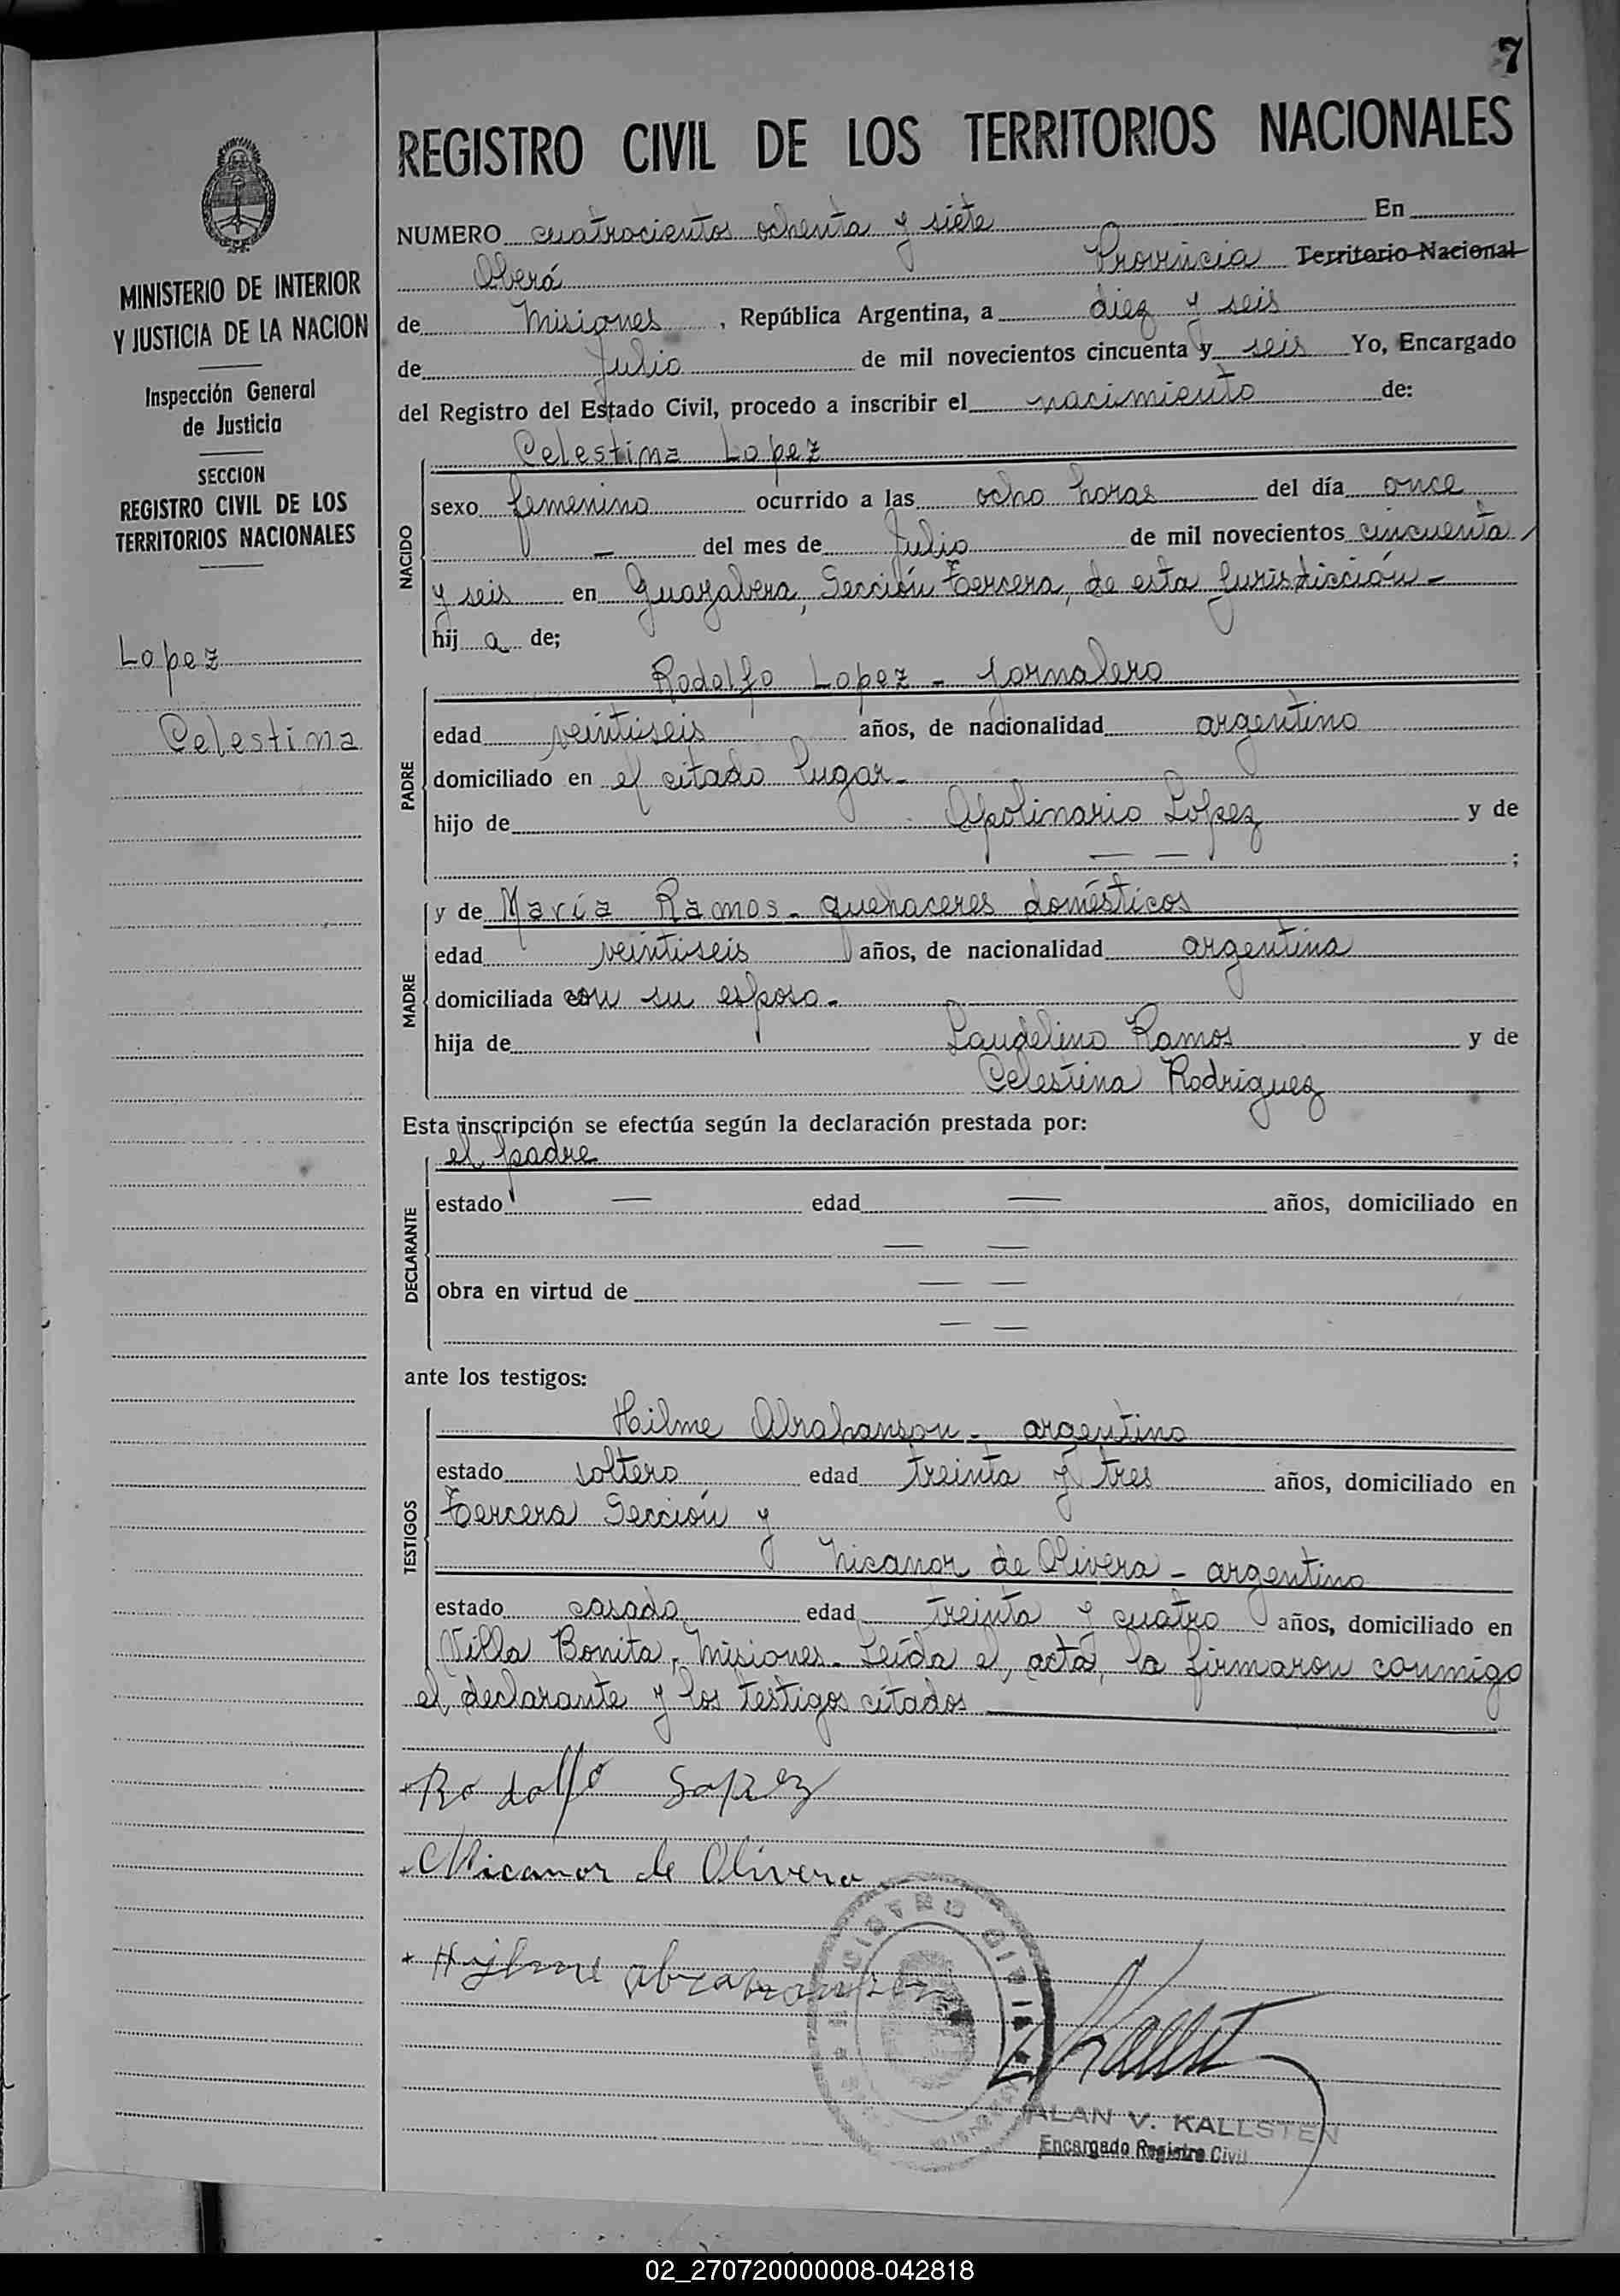 7
REGISTRO CIVIL DE LOS TERRITORIOS NACIONALES
MINISTERIO DE INTERIOR
Y JUSTICIA DE LA NACION
Inspección General
de Justicia
SECCION
REGISTRO CIVIL DE LOS
TERRITORIOS NACIONALES
Lopez
Celestina
NUMERO cuatrocientos ochenta y siete En
Oberá Provincia Territorio Nacional
de Misiones, República Argentina, a diez y seis
de Julio de mil novecientos cincuenta y seis Yo, Encargado
del Registro del Estado Civil, procedo a inscribir el nacimiento de:
NACIDO
Celestina Lopez
sexo femenino ocurrido a las ocho horas del día once
— del mes de Julio de mil novecientos cincuenta
y seis en Guayabera, Sección Tercera, de esta Jurisdicción-
hij a de;
PADRE
Rodolfo Lopez - Jornalero
edad veintiseis años, de nacionalidad argentino
domiciliado en el citado lugar-
hijo de Apolinario Lopez y de
— — ;
MADRE
y de María Ramos - quehaceres domésticos
edad veintiseis años, de nacionalidad argentina
domiciliada con su esposo-
hija de Laudelino Ramos y de
Celestina Rodriguez
Esta inscripción se efectúa según la declaración prestada por:
DECLARANTE
el padre
estado — edad — años, domiciliado en
— —
obra en virtud de — —
— —
ante los testigos:
TESTIGOS
Hilme Abrahanson - argentino
estado soltero edad treinta y tres años, domiciliado en
Tercera Sección y
Nicanor de Olivera - argentino
estado casado edad treinta y cuatro años, domiciliado en
Villa Bonita, Misiones. Leída el acta, la firmaron conmigo
el declarante y los testigos citados
Rodolfo Lopez
Nicanor de Olivera
Hjlme
REGISTRO CIVIL
Kallst
ALAN V. KALLSTEN
Encargado Registro Civil
02_270720000008-042818